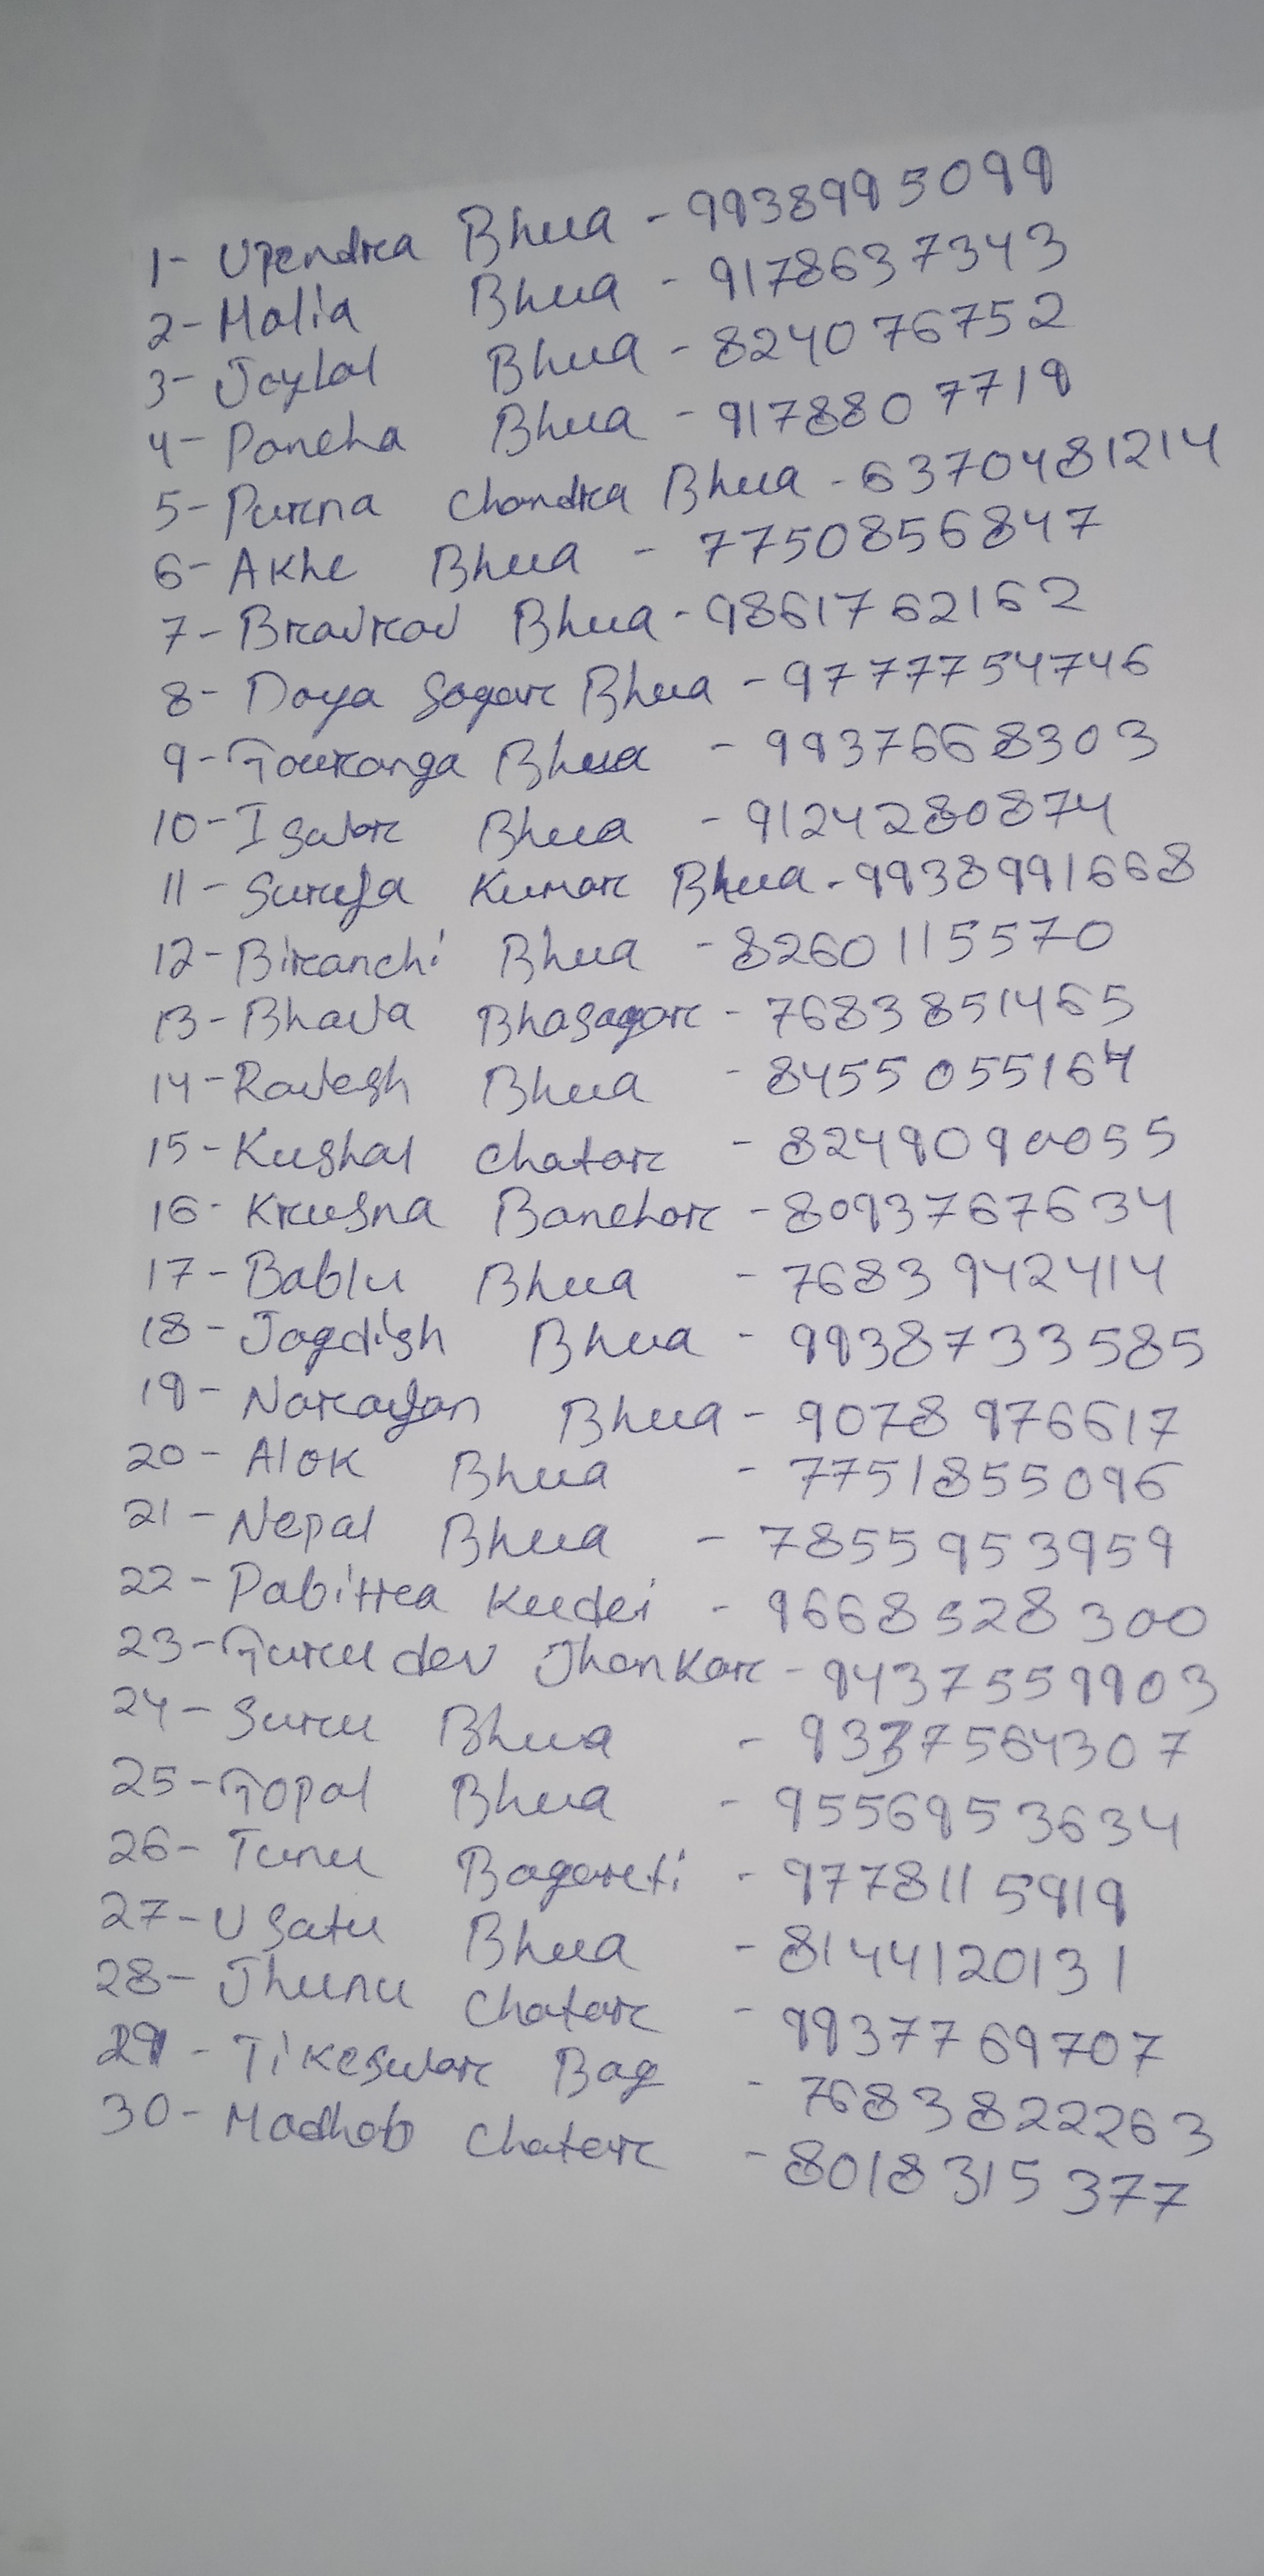 1- Upendra Bhua - 9938995099
2- Malia Bhua - 9178637343
3- Joylal Bhua - 824076752
4- Pancha Bhua - 9178807719
5- Purna Chandra Bhua - 6370481214
6- Akhe Bhua - 7750856847
7- Bhua - 9861762162
8- Daya Sagar Bhua - 9777754746
9- Gouranga Bhua - 9937668303
10- Iswar Bhua - 9124280874
11- Suruja Kumar Bhua - 9938991668
12- Biranchi Bhua - 8260115570
13- Bhava Bhasagar - 7683851465
14- Ravesh Bhua - 8455055164
15- Kushal Chatar - 8249090055
16- Krusna Banchor - 8093767634
17- Bablu Bhua - 7683942414
18- Jagdish Bhua - 9938733585
19- Narayan Bhua - 9078976617
20- Alok Bhua - 7751855096
21- Nepal Bhua - 7855953959
22- Pabitra Kudei - 9668528300
23- Gurudev Jhankar - 9437559903
24- Suru Bhua - 9337564307
25- Gopal Bhua - 9556953634
26- Tunu Bagarti - 9778115919
27- Usatu Bhua - 8144120131
28- Jhunu Chatar - 9937769707
29- Tikeswar Bag - 7683822263
30- Madhab Chatar - 8018315377